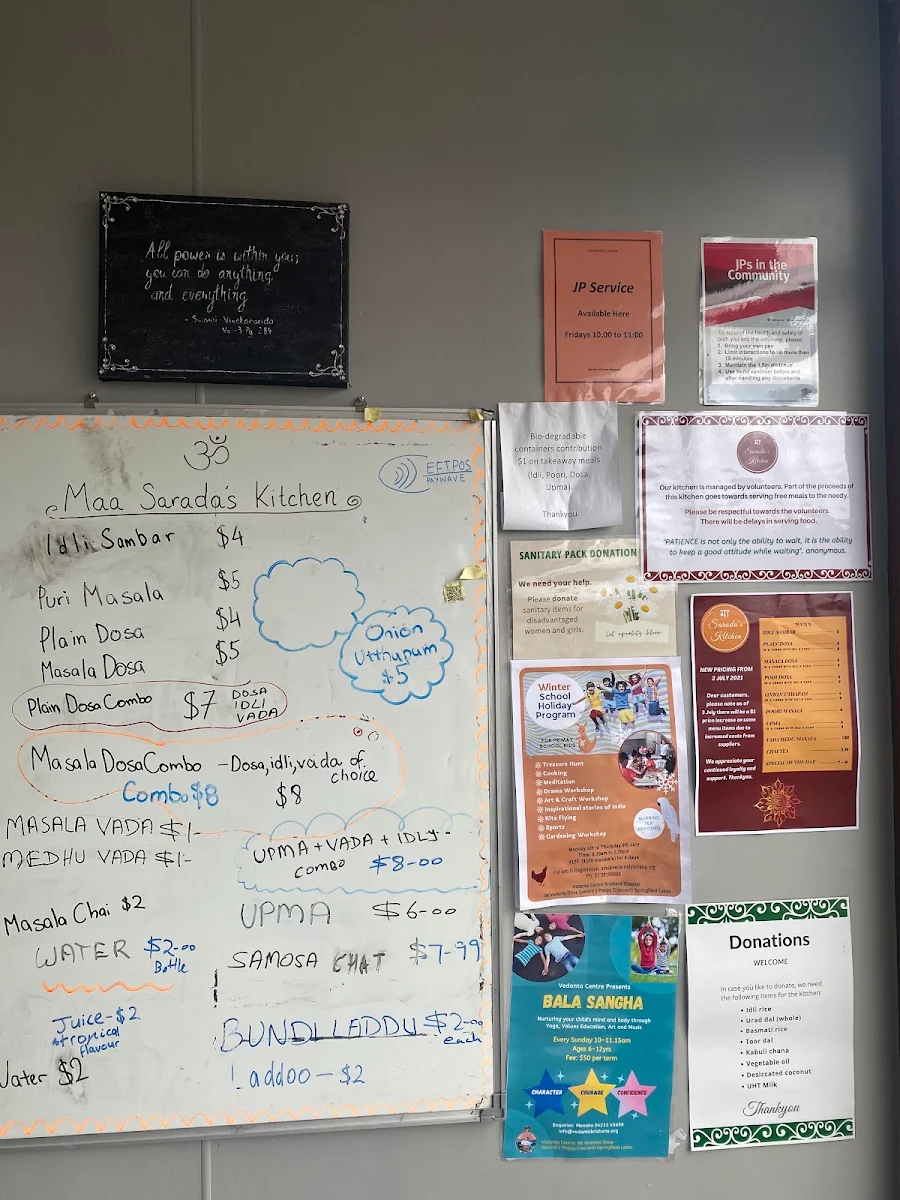 All power is within you;
you can do anything
and everything
- Swami Vivekananda
Vo-3 Pg 284
ॐ
EFTPOS
PAYWAVE
Maa Sarada's Kitchen
Idli Sambar $4
Puri Masala $5
Plain Dosa $4
Masala Dosa $5
Onion
Utthupam
$5
Plain Dosa Combo $7 DOSA
IDLI
VADA
Masala Dosa Combo - Dosa, idli, vada of
choice
Combo $8 $8
MASALA VADA $1-
MEDHU VADA $1-
UPMA + VADA + IDLY-
combo $8-00
Masala Chai $2
UPMA $6-00
WATER $2-00
Bottle
SAMOSA CHAT $7-99
Juice-$2
tropical
flavour
BUNDI LADDU $2-00
each
Water $2
Laddoo - $2
JP Service
Available Here
Fridays 10:00 to 11:00
JPs in the
Community
To support the health and safety of
both you and the volunteer, please
1. Bring your own pen
2. Limit interactions to no more than
15 minutes
3. Maintain the 1.5m distance
4. Use hand sanitiser before and
after handling any documents
Bio-degradable
containers contribution
$1 on takeaway meals
(Idli, Poori, Dosa,
Upma).
Thankyou.
मा
Sarada's
Kitchen
Our kitchen is managed by volunteers. Part of the proceeds of
this kitchen goes towards serving free meals to the needy.
Please be respectful towards the volunteers.
There will be delays in serving food.
"PATIENCE is not only the ability to wait, it is the ability
to keep a good attitude while waiting". anonymous.
SANITARY PACK DONATION
We need your help.
Please donate
sanitary items for
disadvantaged
women and girls.
Let equality bloom
मा
Sarada's
Kitchen
NEW PRICING FROM
3 JULY 2021
Dear customers,
please note as of
3 July there will be a $1
price increase on some
menu items due to
increased costs from
suppliers.
We appreciate your
continued loyalty and
support. Thankyou.
MENU
IDLI SAMBAR
PLAIN DOSA
MASALA DOSA
PODI DOSA
ONION UTHAPAM
POORI MASALA
UPMA
VADA MEDU/MASALA
CHAI TEA
SPECIAL OF THE DAY
Winter
School
Holiday
Program
FOR PRIMARY
SCHOOL KIDS
Treasure Hunt
Cooking
Meditation
Drama Workshop
Art & Craft Workshop
Inspirational stories of India
Kite Flying
Sports
Gardening Workshop
MORNING
TEA
PROVIDED
Vedanta Centre Brisbane Chapter
Vedanta Centre Presents
BALA SANGHA
Nurturing your child's mind and body through
Yoga, Values Education, Art and Music
Every Sunday 10-11.15am
Ages 6-12yrs
Fee: $50 per term
CHARACTER COURAGE CONFIDENCE
info@vedantabrisbane.org
Donations
WELCOME
In case you like to donate, we need
the following items for the kitchen:
• Idli rice
• Urad dal (whole)
• Basmati rice
• Toor dal
• Kabuli chana
• Vegetable oil
• Desiccated coconut
• UHT Milk
Thankyou